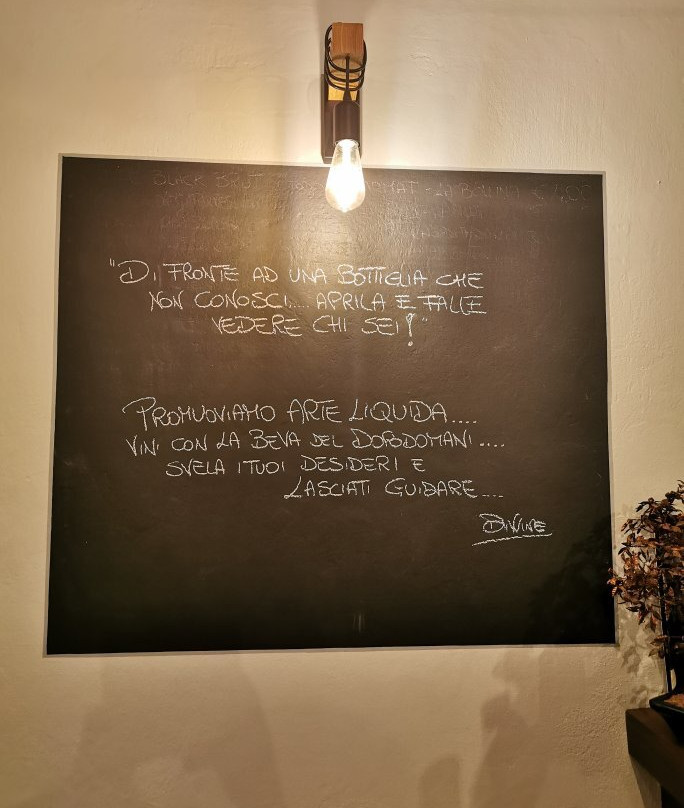 BLACK BRUT
"DI FRONTE AD UNA BOTTIGLIA CHE
NON CONOSCI.... APRILA E FALLE
VEDERE CHI SEI!"
PROMUOVIAMO ARTE LIQUIDA....
VINI CON LA BEVA DEL DOPODOMANI....
SVELA I TUOI DESIDERI E
LASCIATI GUIDARE...
DiVINE